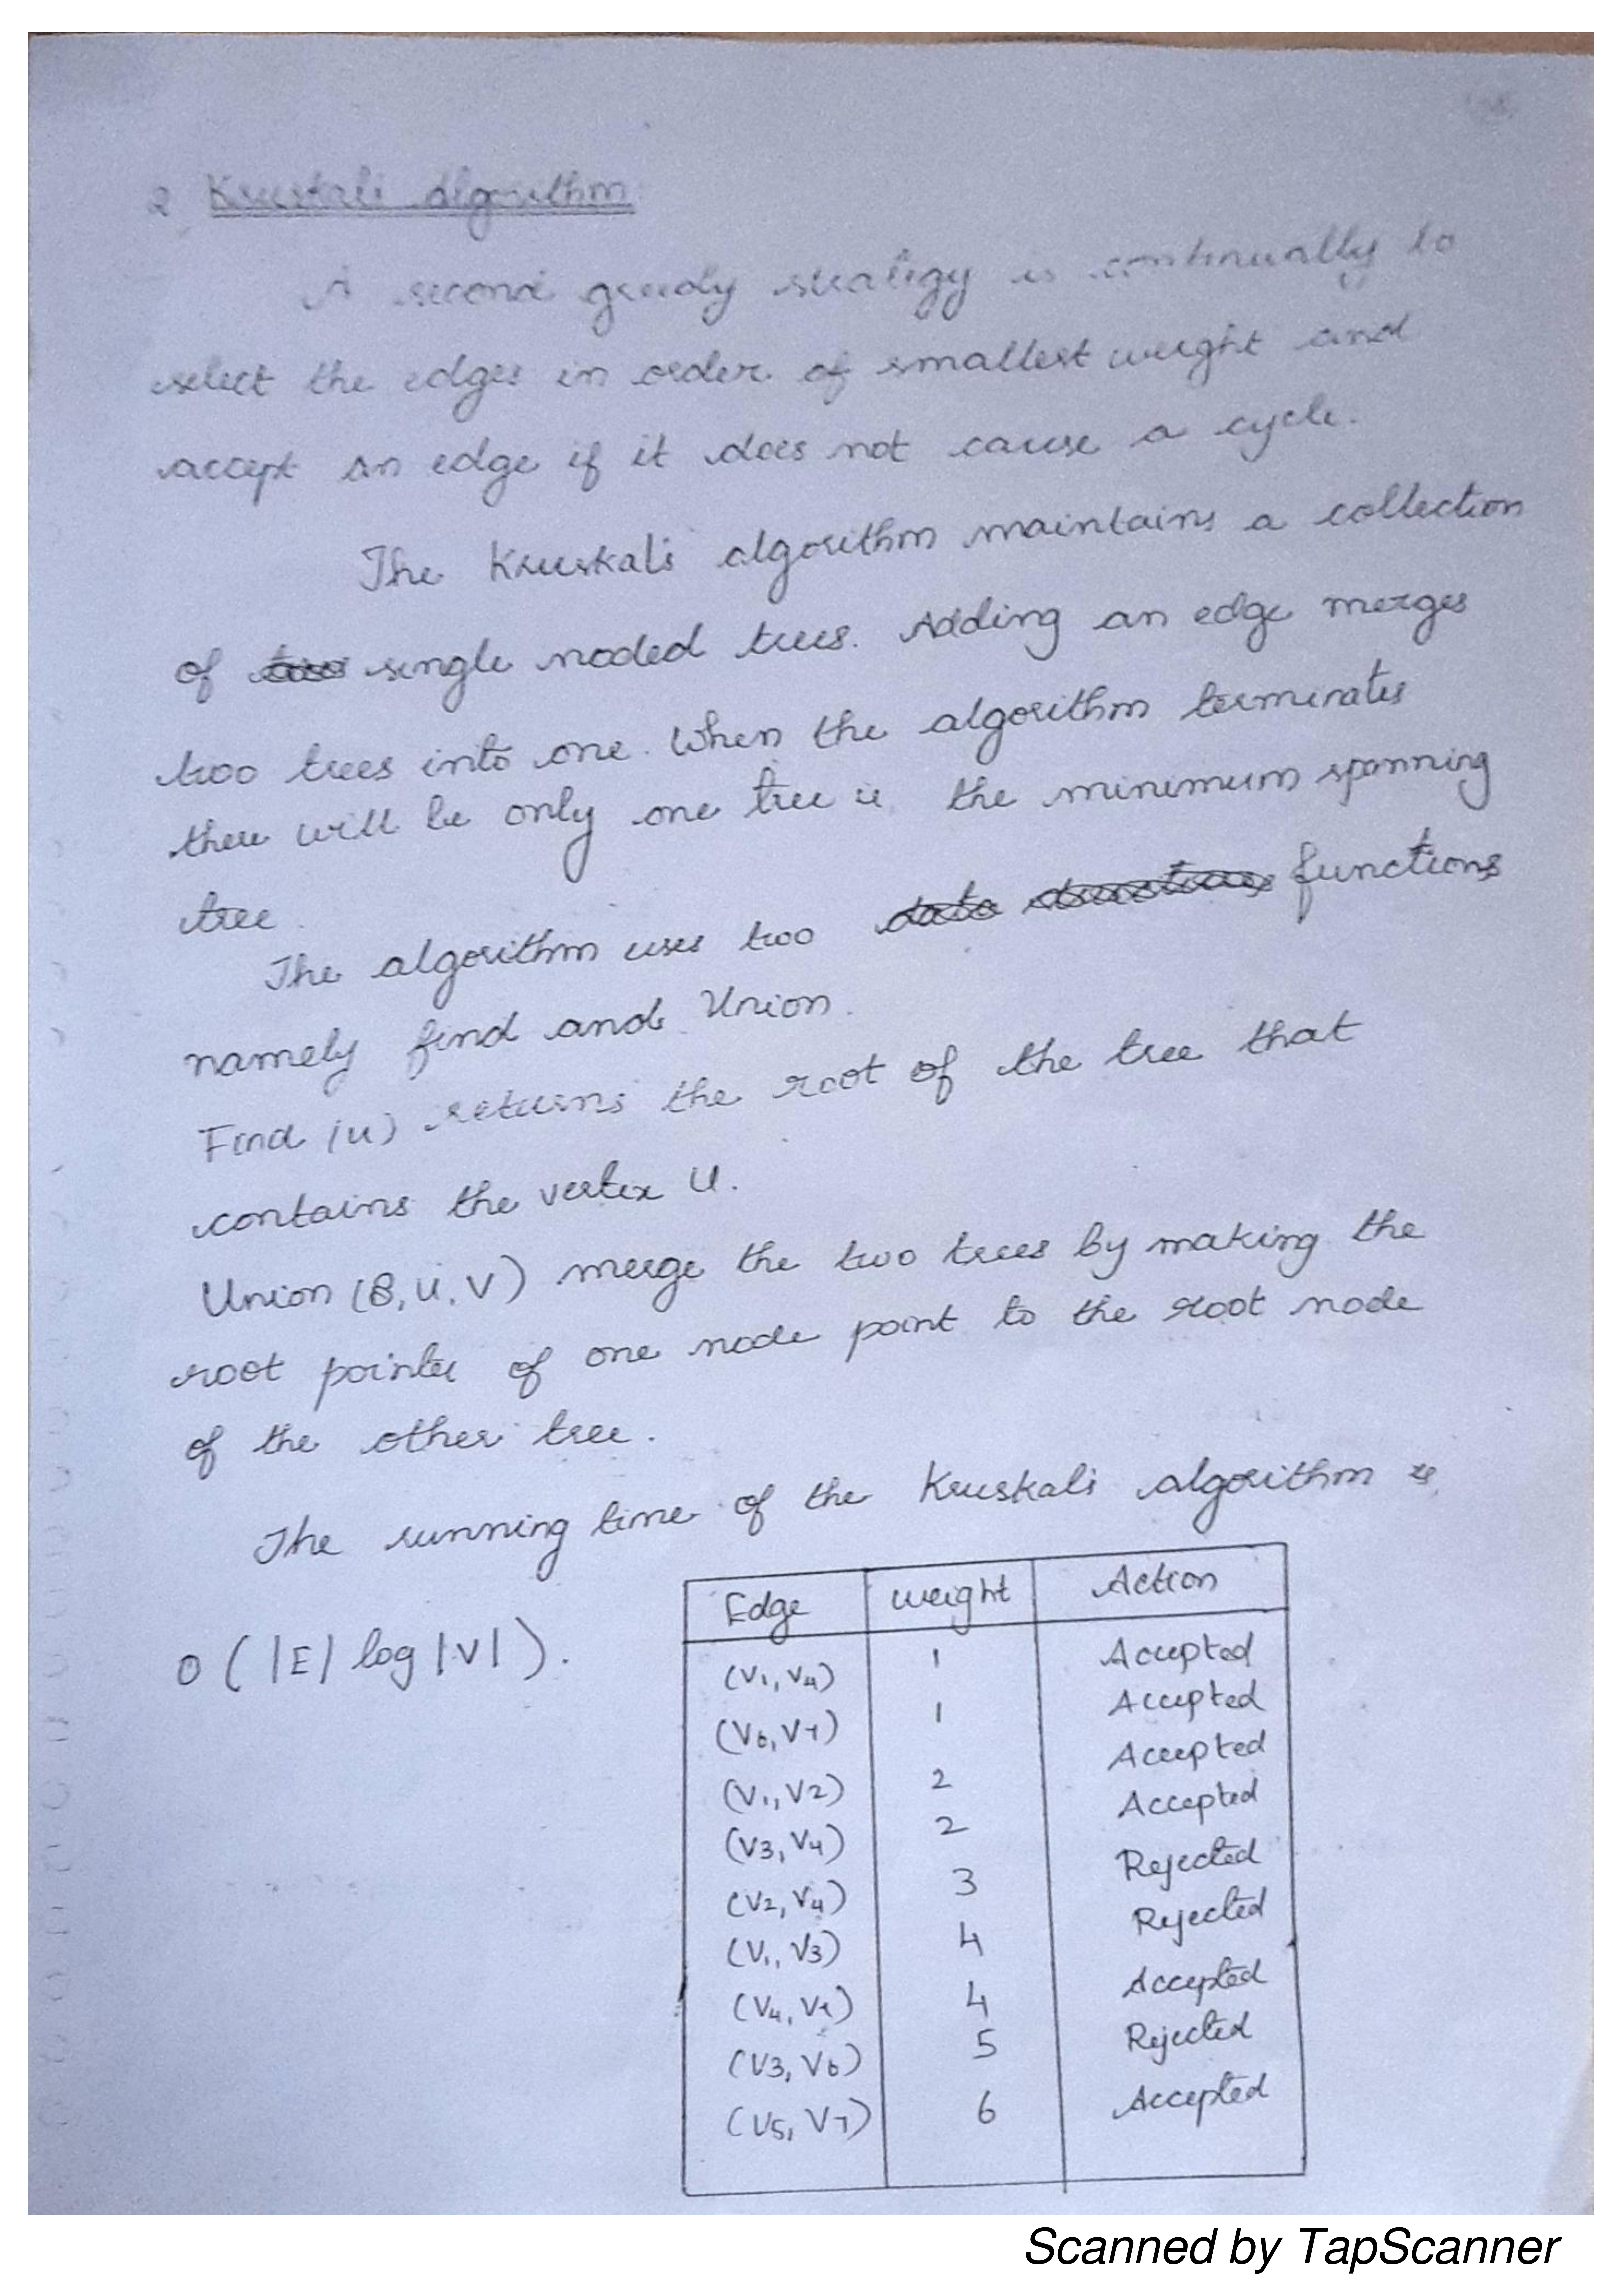 2. Kruskal's Algorithm
A second greedy strategy is continually to
select the edges in order of smallest weight and
accept an edge if it does not cause a cycle.
The Kruskal's algorithm maintains a collection
of single noded trees. Adding an edge merges
two trees into one. When the algorithm terminates
there will be only one tree ie the minimum spanning
tree.
The algorithm uses two data structures functions
namely find and Union.
Find (u) returns the root of the tree that
contains the vertex U.
Union (S, U, V) merge the two trees by making the
root pointer of one node point to the root node
of the other tree.
The running time of the Kruskal's algorithm is
O ( |E| log |V| ).
Edge weight Action
(V1, V4) 1 Accepted
(V6, V7) 1 Accepted
(V1, V2) 2 Accepted
(V3, V4) 2 Accepted
(V2, V4) 3 Rejected
(V1, V3) 4 Rejected
(V4, V7) 4 Accepted
(V3, V6) 5 Rejected
(V5, V7) 6 Accepted
Scanned by TapScanner